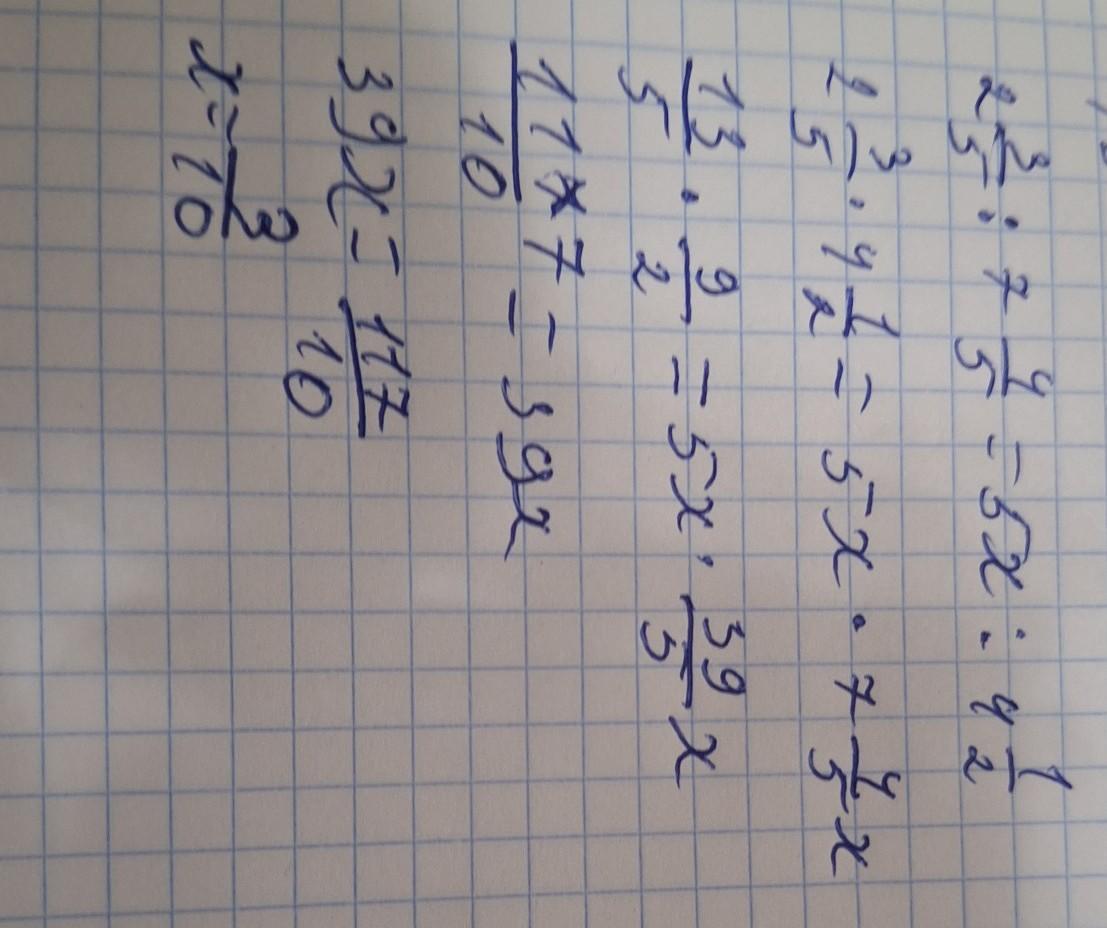 2 3/5 : 7 4/5 = 5x : 4 1/2
2 3/5 · 4 1/2 = 5x · 7 4/5 x
13/5 · 9/2 = 5x · 39/5 x
117/10 = 39x
39x = 117/10
x = 3/10